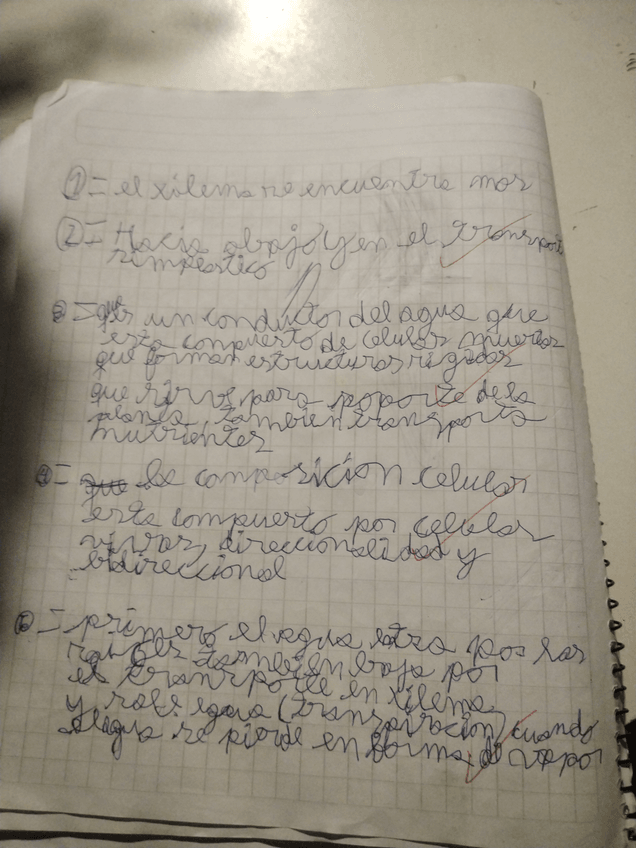 1 = el xilema se encuentra mas
2 = Hacia abajo y en el transport
simplastico
3 = que es un conductor del agua que
esta compuesto de celulas muertas
que forman estructuras rigidas
que sirve para soporte de la
planta, tambien transporta
nutrientes
4 = que la composicion celular
esta compuesto por celulas
vivas, direccionalidad y
bidireccional
5 = primero el agua entra por las
raices tambien baja por
el transporte en xilema
y sale agua (transpiracion) cuando
el agua se pierde en forma de vapor